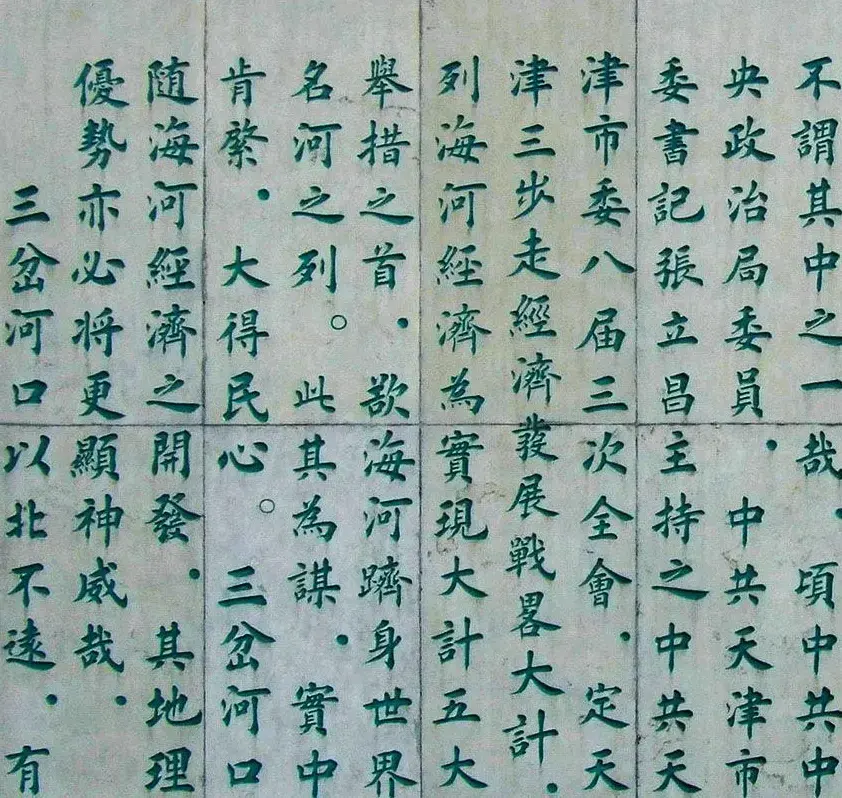 不謂其中之一哉．頃中共中
央政治局委員．中共天津市
委書記張立昌主持之中共天
津市委八届三次全會．定天
津三步走經濟發展戰畧大計．
列海河經濟為實現大計五大
舉措之首．欲海河躋身世界
名河之列。此其為謀．實中
肯綮．大得民心。三岔河口
随海河經濟之開發．其地理
優勢亦必将更顯神威哉．
三岔河口以北不遠．有